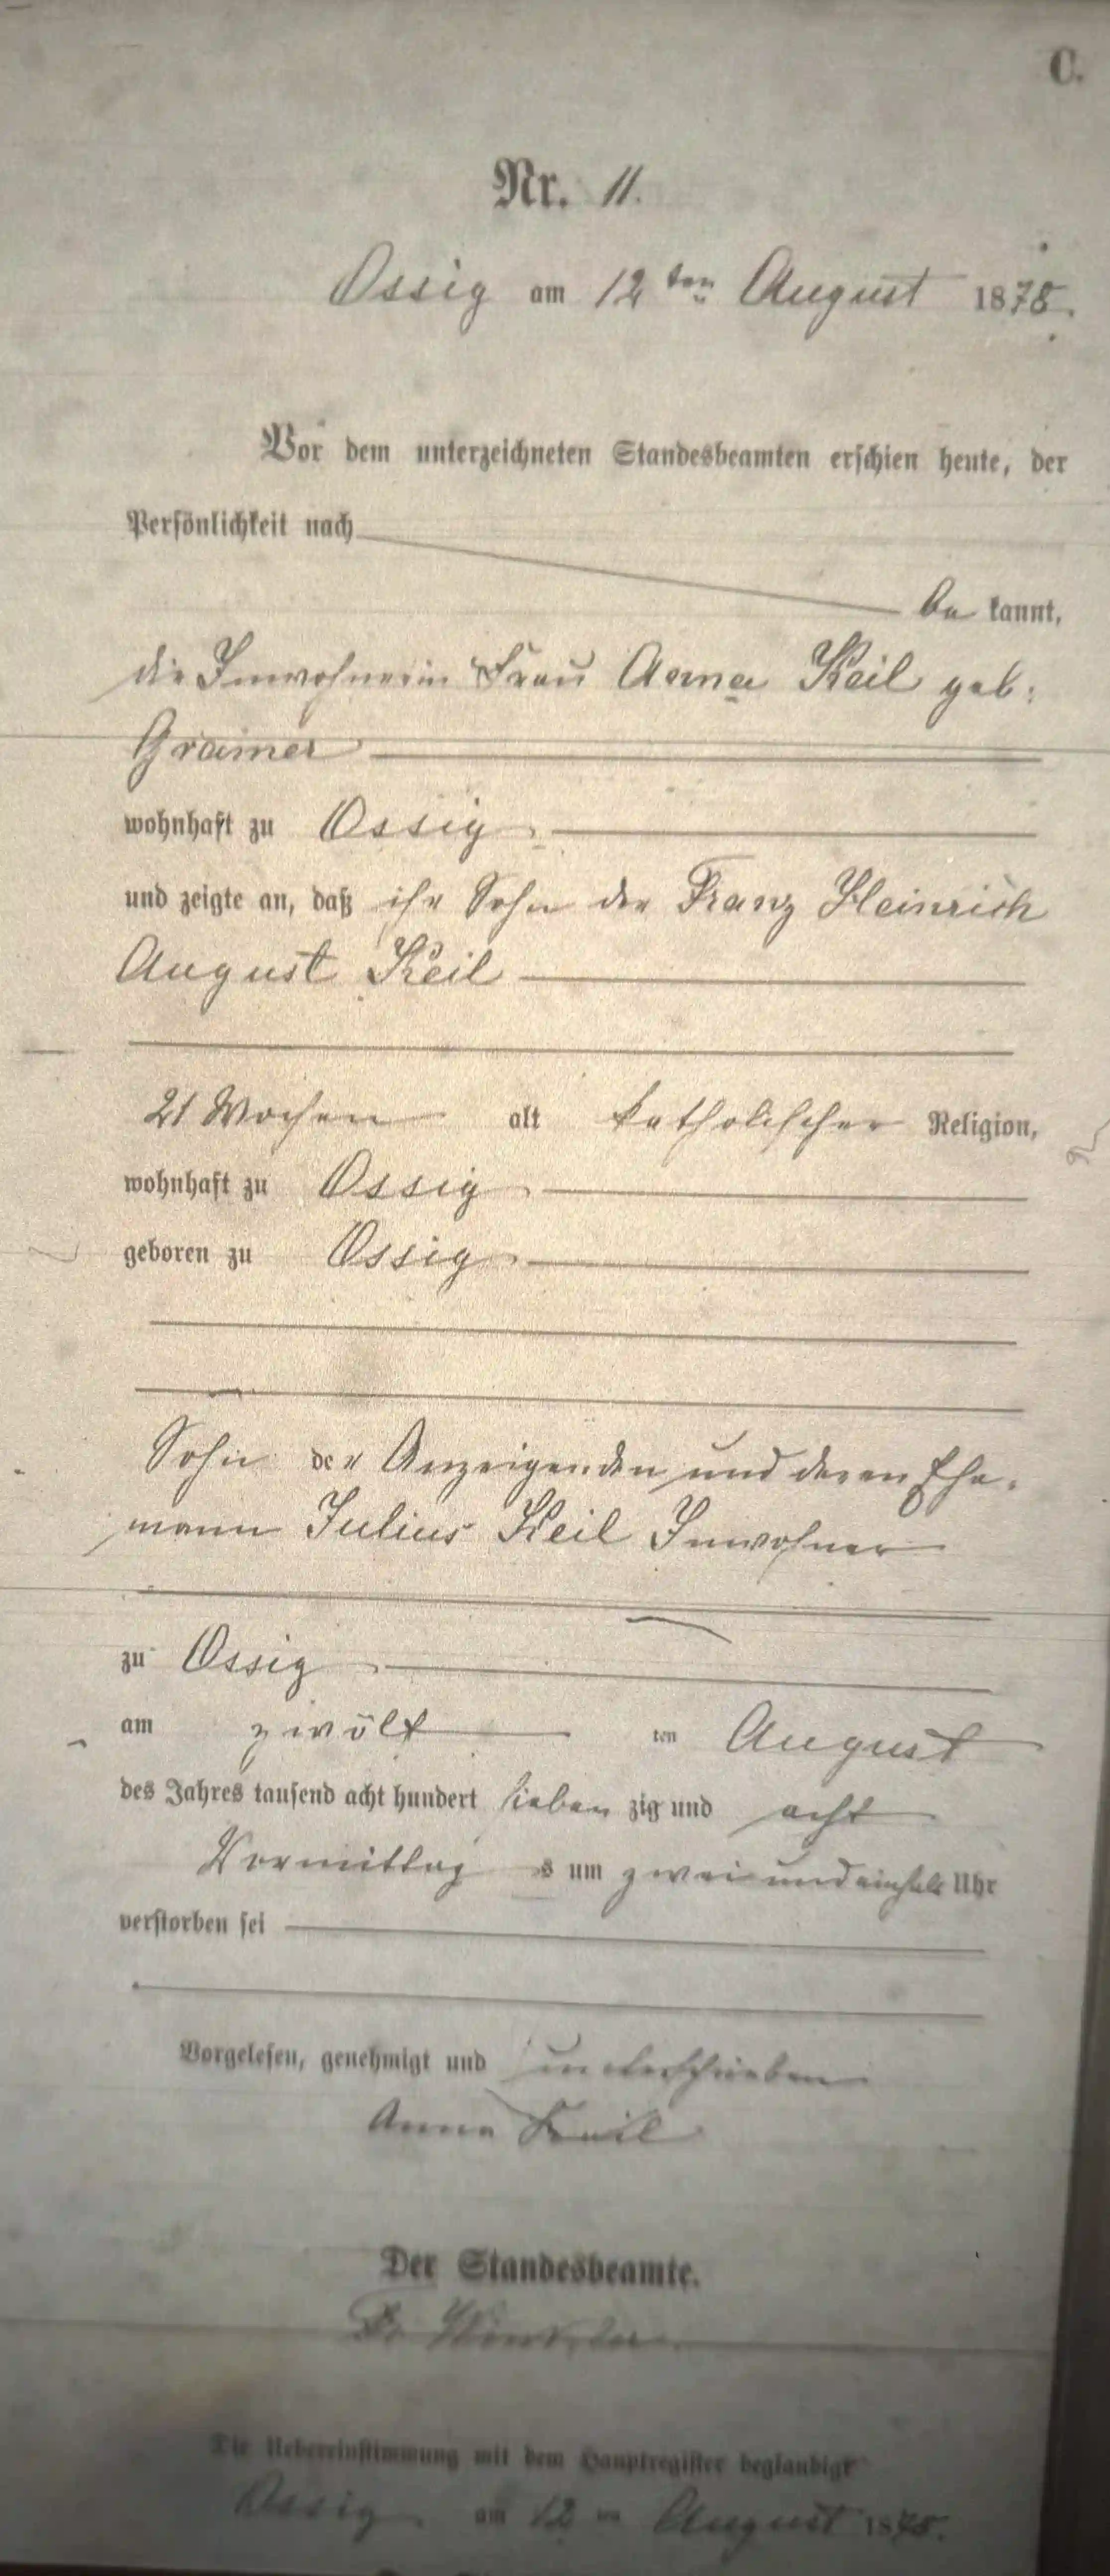 C.
Nr. 11.
Ossig am 12ten August 1878.
Vor dem unterzeichneten Standesbeamten erschien heute, der
Persönlichkeit nach
be kannt,
die Inwohnerin Frau Anna Keil geb:
Gramer
wohnhaft zu Ossig
und zeigte an, daß ihr Sohn der Franz Heinrich
August Keil
21 Wochen alt katholischer Religion,
wohnhaft zu Ossig
geboren zu Ossig
Sohn der Anzeigenden und deren Ehe-
mann Julius Keil Inwohner
zu Ossig
am zwölf ten August
des Jahres tausend acht hundert sieben zig und acht
Vormittag s um zwei und einhalb Uhr
verstorben sei
Vorgelesen, genehmigt und unterschrieben
Anna Keil
Der Standesbeamte.
Die Uebereinstimmung mit dem Hauptregister beglaubigt
Ossig am 12 ten August 1878.